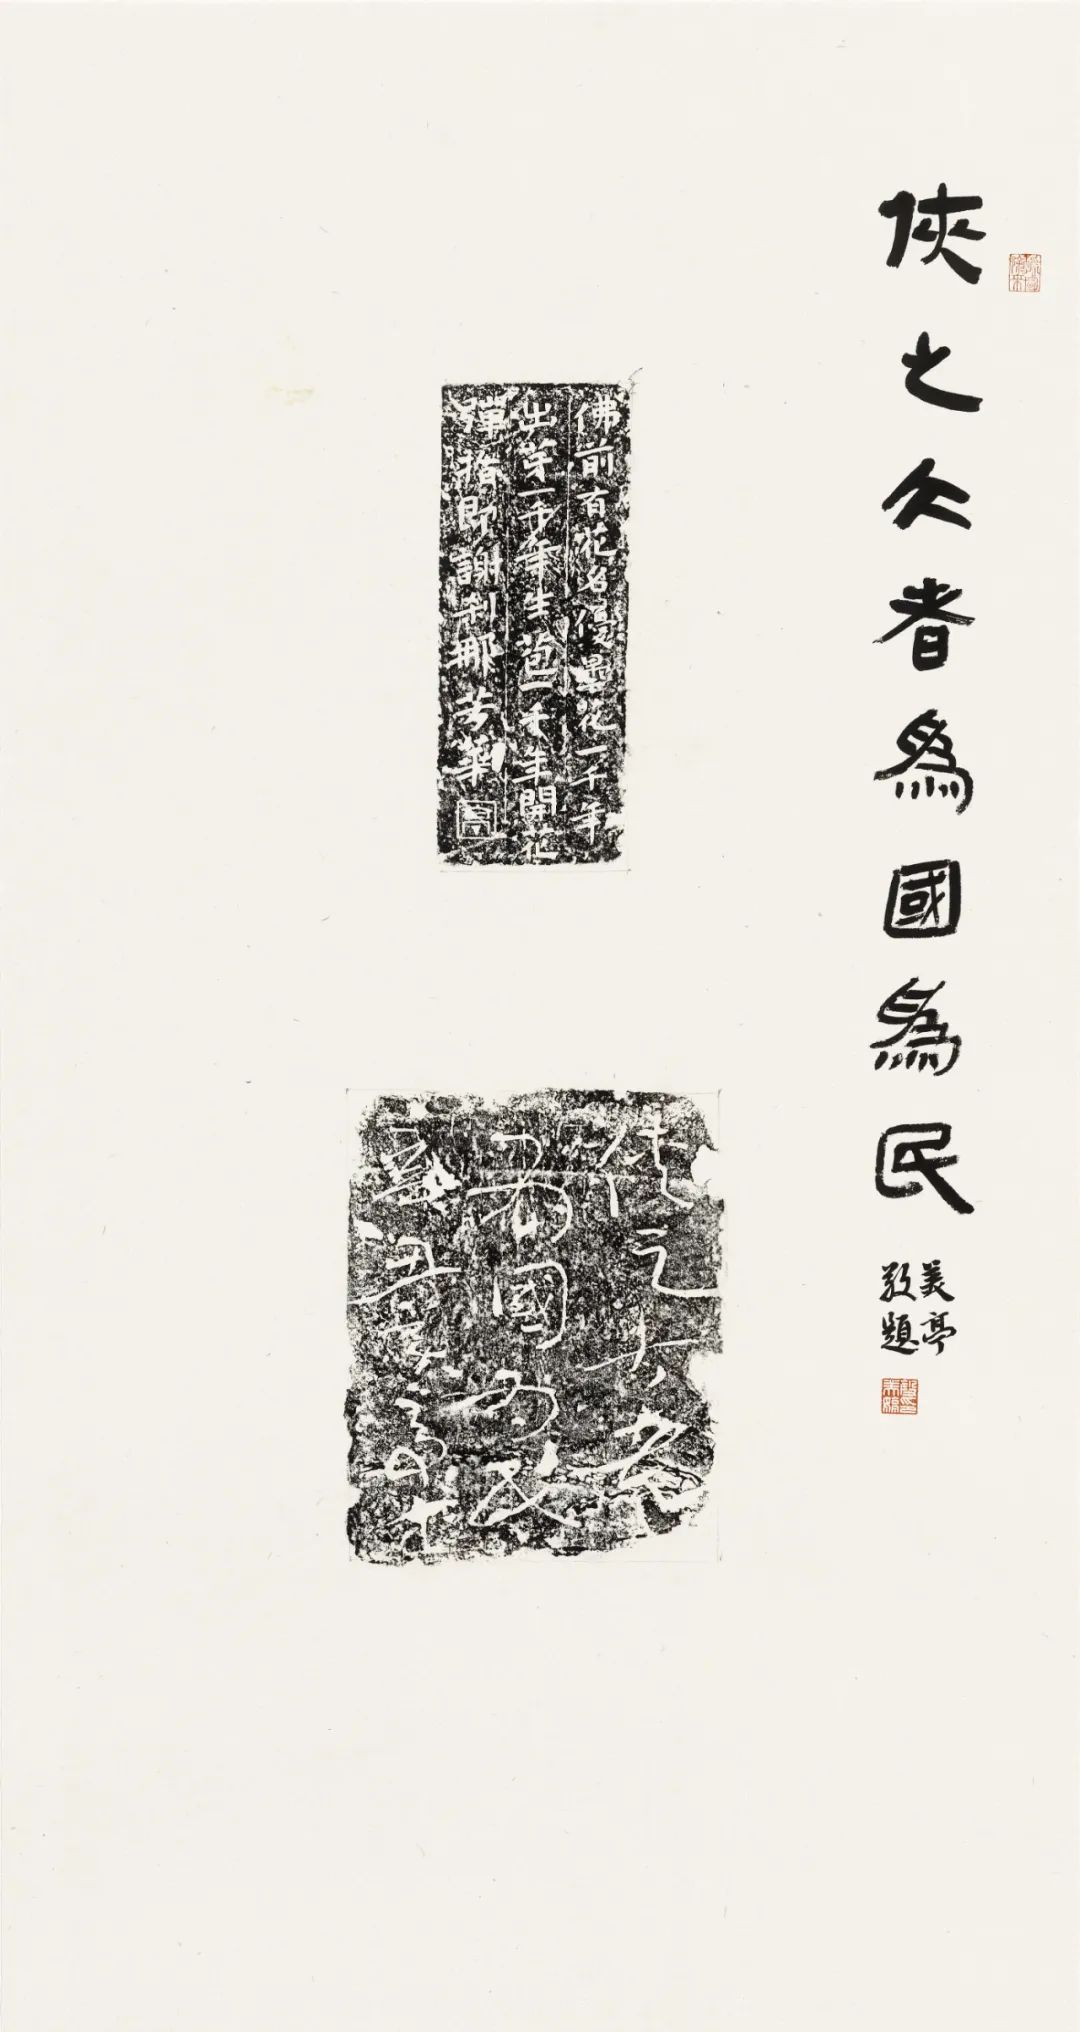 俠之大者為國為民
美亭
敬題
佛前有花名優曇花一千年
出芽一千年生苞一千年開花
彈指即謝刹那芳華
俠之大者
為國為民